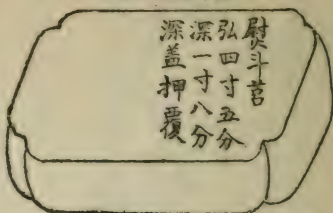 熨斗筥
弘四寸五分
深一寸八分
深盖押覆